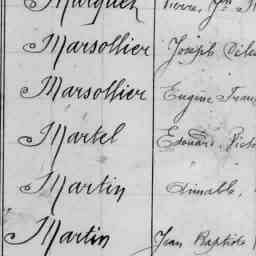 Marquet Pierre, Jn
Marsollier Joseph
Marsollier Eugène
Martel Edouard
Martin Aimable,
Martin Jean Baptiste